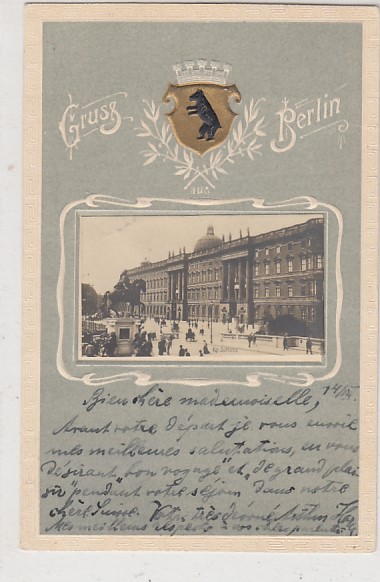 Gruss
Berlin
aus
Kg. Schloss
Bien chère mademoiselle,
Avant votre départ je vous envoie
mes meilleures salutations, en vous
désirant "bon voyage" et "de grand plai-
sir" pendant votre séjour dans notre
chère Votre très dévoué Arthur
Mes meilleurs respects à vos